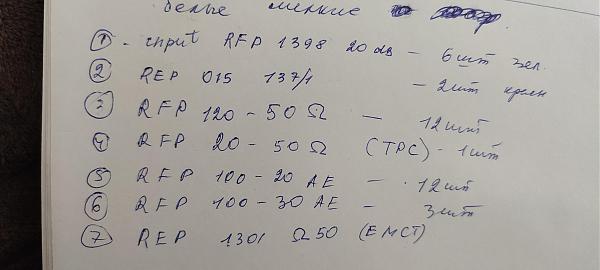 белые мелкие
① - input RFP 1398 20 дв - 6 шт зел.
② REP 015 137/1 - 2 шт красн
③ RFP 120 - 50 Ω - 12 шт
④ RFP 20 - 50 Ω (TPC) - 1 шт
⑤ RFP 100 - 20 AE - 12 шт
⑥ RFP 100 - 30 AE - 3 шт
⑦ REP 1301 Ω 50 (EMCT)